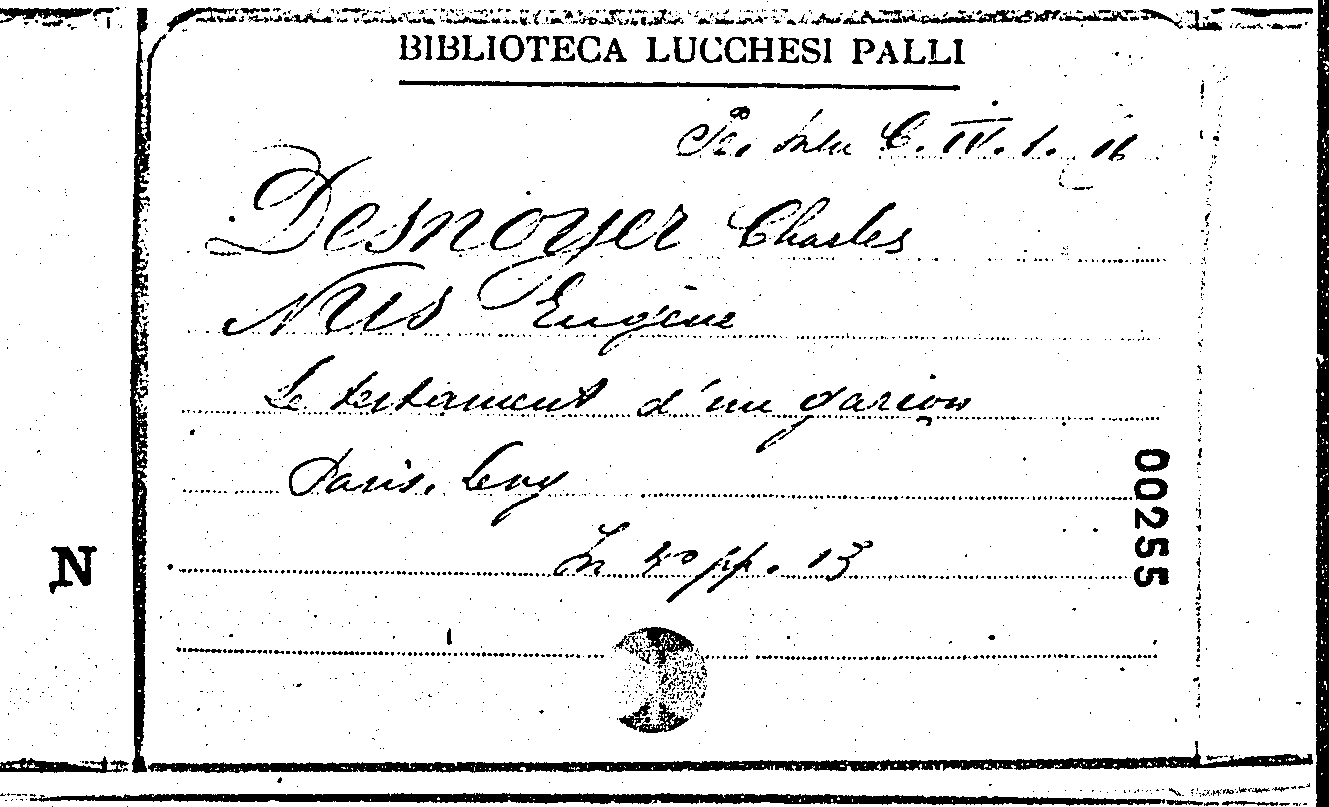 BIBLIOTECA LUCCHESI PALLI
C. IV. 1. 16
Desnoyer Charles
Nus Eugène
Le testament d'un garçon
Paris. Levy
In 4º pp. 13
00255
N